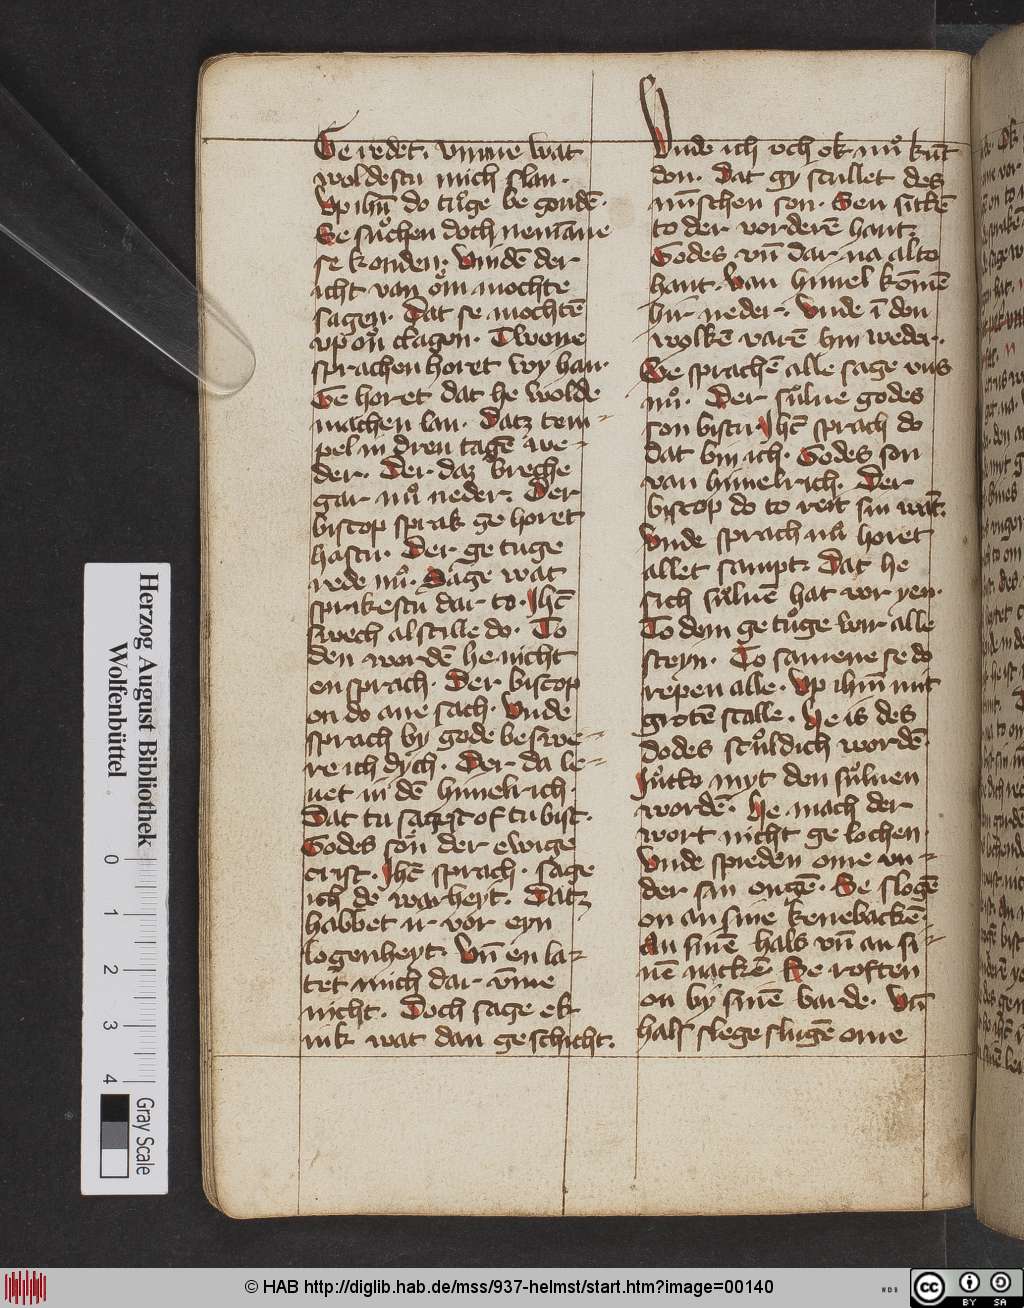 Ge redet. vmme wat
woldestu mich slan.
Vp ihm̄ do tuͦge be gondē.
Se suͦchen doch nemāne
se konden. Vindē der
icht van oͤm mochte
sagen. Dat se mochtē
vp on̄ clagen. Twene
sprachen horet wy han.
Ge horet dat he wolde
machen lan. Datz tem-
pel in dren tagē we-
der. Der daz breche
gar nuͦ neder. Der
biscop sprak ge horet
hastu. Der ge tuge
rede nuͦ. Sage wat
sprikestu dar to. Ihc̄
swech al stille do. To
den wordē he nicht
en sprach. Der biscop
on do ane sach. Vnde
sprach by gode beswe-
re ich dych. Der da le-
uet in dē himelrich.
Dat tu sagest of tu bist.
Godes son der ewige
crist. Ihc̄ sprach. sage
ich de warheyt. Datz
habbet ir vor eyn
logenheyt. Vn̄ en la-
tet mich dar v̄me
nicht. Doch sage ek
nik wat dan geschicht.
Vnde ich vch ok nuͦ kūt
don. Dat gy scullet des
mīschen son. Sen sittē
to der vorderē hant
Godes vn̄ dar na alto
hant. Van himel komē
hir neder. Vnde ī don
wolkē varē hin weder.
Se sprachē alle sage vns
nuͦ. Der suͦlue godes
son bistu. Ihc̄ sprach do
dat bin ich. Godes son
van himelrich. Der
biscop do to reit sin wāt.
Vnde sprach nuͦ horet
allet sampt. Dat he
sich suͦluē hat vor yen.
To dem ge tuͦge wir alle
steyn. To samene se do
repen alle. Vp ihm̄ mit
grotē scalle. He is des
dodes scuͦldich wordē.
Iuͦtto myt den suͦluen
wordē. He mach der
wort nicht ge lochen.
Vnde spieden ome vn-
der sin ougē. Se slogē
on an sine kenebackē.
An sinē hals vn̄ an si-
nē nackē Se roften
on by sinē barde. Vn̄
half slege slugē ome
Herzog August Bibliothek
Wolfenbüttel
0 1 2 3 4
Gray Scale
© HAB http://diglib.hab.de/mss/937-helmst/start.htm?image=00140
WDB
cc BY SA